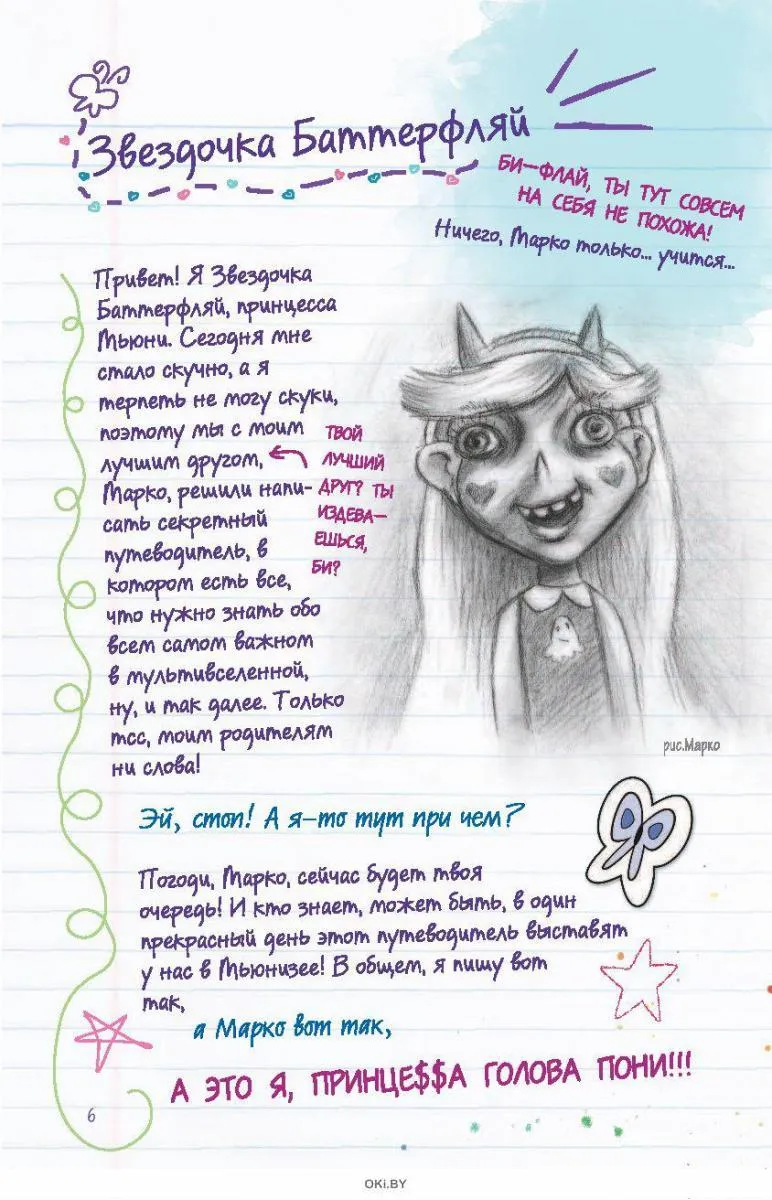 Звездочка Баттерфляй
БИ-ФЛАЙ, ТЫ ТУТ СОВСЕМ
НА СЕБЯ НЕ ПОХОЖА!
Ничего, Марко только... учится...
Привет! Я Звездочка
Баттерфляй, принцесса
Мьюни. Сегодня мне
стало скучно, а я
терпеть не могу скуки,
поэтому мы с моим
лучшим другом,
Марко, решили напи-
сать секретный
путеводитель, в
котором есть все,
что нужно знать обо
всем самом важном
в мультивселенной,
ну, и так далее. Только
тсс, моим родителям
ни слова!
ТВОЙ
ЛУЧШИЙ
ДРУГ? ТЫ
ИЗДЕВА-
ЕШЬСЯ,
БИ?
рис.Марко
Эй, стоп! А я-то тут при чем?
Погоди, Марко, сейчас будет твоя
очередь! И кто знает, может быть, в один
прекрасный день этот путеводитель выставят
у нас в Мьюнизее! В общем, я пишу вот
так,
а Марко вот так,
А ЭТО Я, ПРИНЦЕ$$А ГОЛОВА ПОНИ!!!
6
OKi.BY